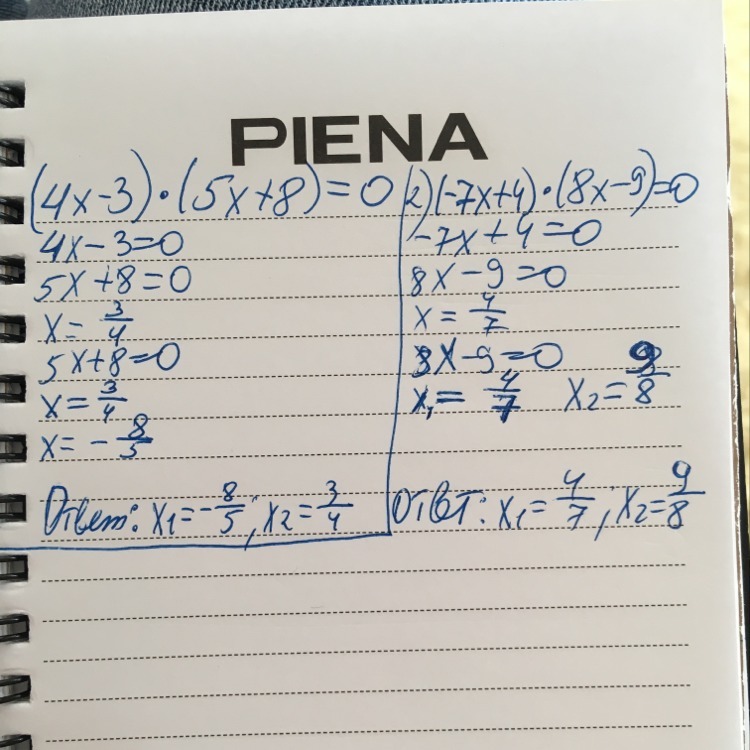 PIENA
(4x-3)·(5x+8)=0
4x-3=0
5x+8=0
x=3/4
5x+8=0
x=3/4
x=-8/5
Ответ: x₁=-8/5; x₂=3/4
2)(-7x+4)·(8x-9)=0
-7x+4=0
8x-9=0
x=4/7
8x-9=0
x₁=4/7 x₂=9/8
Ответ: x₁=4/7; x₂=9/8